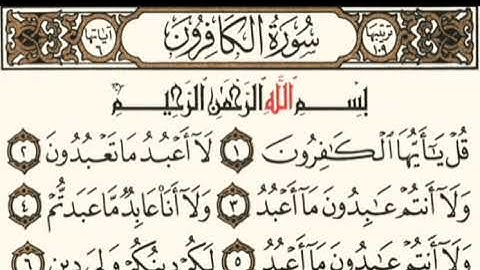 ترتيبها ١٠٩ سُورَةُ الْكَافِرُونَ آياتها ٦
بِسْمِ اللَّهِ الرَّحْمَٰنِ الرَّحِيمِ
قُلْ يَٰٓأَيُّهَا ٱلْكَٰفِرُونَ ١ لَآ أَعْبُدُ مَا تَعْبُدُونَ ٢
وَلَآ أَنتُمْ عَٰبِدُونَ مَآ أَعْبُدُ ٣ وَلَآ أَنَا۠ عَابِدٌ مَّا عَبَدتُّمْ ٤
وَلَآ أَنتُمْ عَٰبِدُونَ مَآ أَعْبُدُ ٥ لَكُمْ دِينُكُمْ وَلِىَ دِينِ ٦